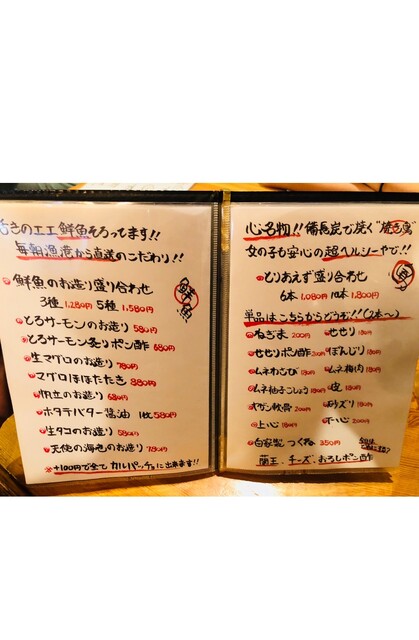 活きのエエ鮮魚そろってます!!
毎朝漁港から直送のこだわり!!
鮮魚
鮮魚のお造り盛り合わせ
3種 1,280円 5種 1,580円
とろサーモンのお造り 580円
とろサーモン炙りポン酢 680円
生マグロのお造り 780円
マグロほほたたき 880円
帆立のお造り 680円
ホタテバター醤油 1枚 580円
生タコのお造り 580円
天使の海老のお造り 780円
※ +100円で全て カルパッチョに出来ます!!
心名物!! 備長炭で焼く"焼き鳥"
女の子も安心の超ヘルシーやで!!
とりあえず盛り合わせ
6本 1,080円 10本 1,800円
単品はこちらからどうぞ!!(2本〜)
ねぎま 200円 せせり 180円
せせりポン酢 ぼんじり 180円
ムネわさび ムネ梅肉 180円
ムネ柚子こしょう 180円 皮 180円
ヤゲン軟骨 200円 砂ズリ 180円
上心 180円
自家製 つくね 350円
蘭王、チーズ、おろしポン酢